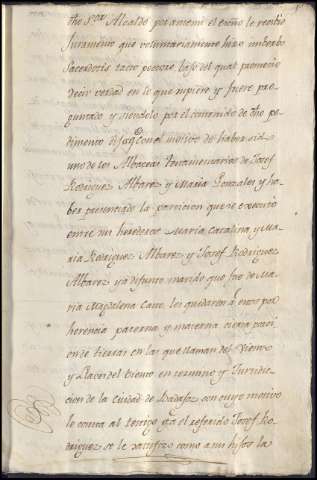 dho Sor Alcalde por ante mi el essno le recibio
Juramento que voluntariamente hizo in berbo
Sacerdotis tacto pectore, bajo del qual prometio
decir verdad en lo que supiere y fuere pre
guntado y siendolo por el contenido de dho pe
dimento dijo Con el motivo de haber sido
uno de los Albaceas testamentarios de Josef
Rodriguez Albarez y Maria Gonzales y ha
ber presenciado la particion que se executo
entre sus herederos Maria Catalina, y Ma
ria Rodriguez Albarez y Josef Rodriguez
Albarez ya difunto marido que fue de Ma
ria Magdalena Cano, les quedaron a estos por
herencia paterna y materna cierta porci
on de tierras en las que llaman del Viento
y Llanos del viento en termino y Jurisdic
cion de la Ciudad de Badajoz con cuyo motivo
le consta al testigo qe el referido Josef Ro
driguez se le como a sus hijos la